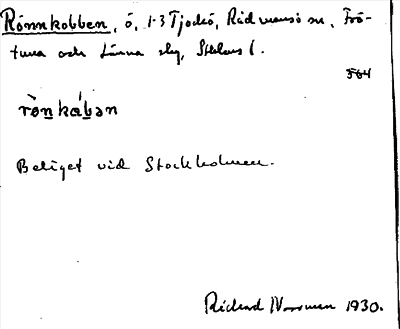 Rönnkobben, ö, 1-3 Tjockö, Rådmansö sn, Frö-
tuna och Länna skg, Sthlms l.
564
rö̀n̲káb̲ən
Beläget vid Stockholmen.
Richard Norrman 1930.